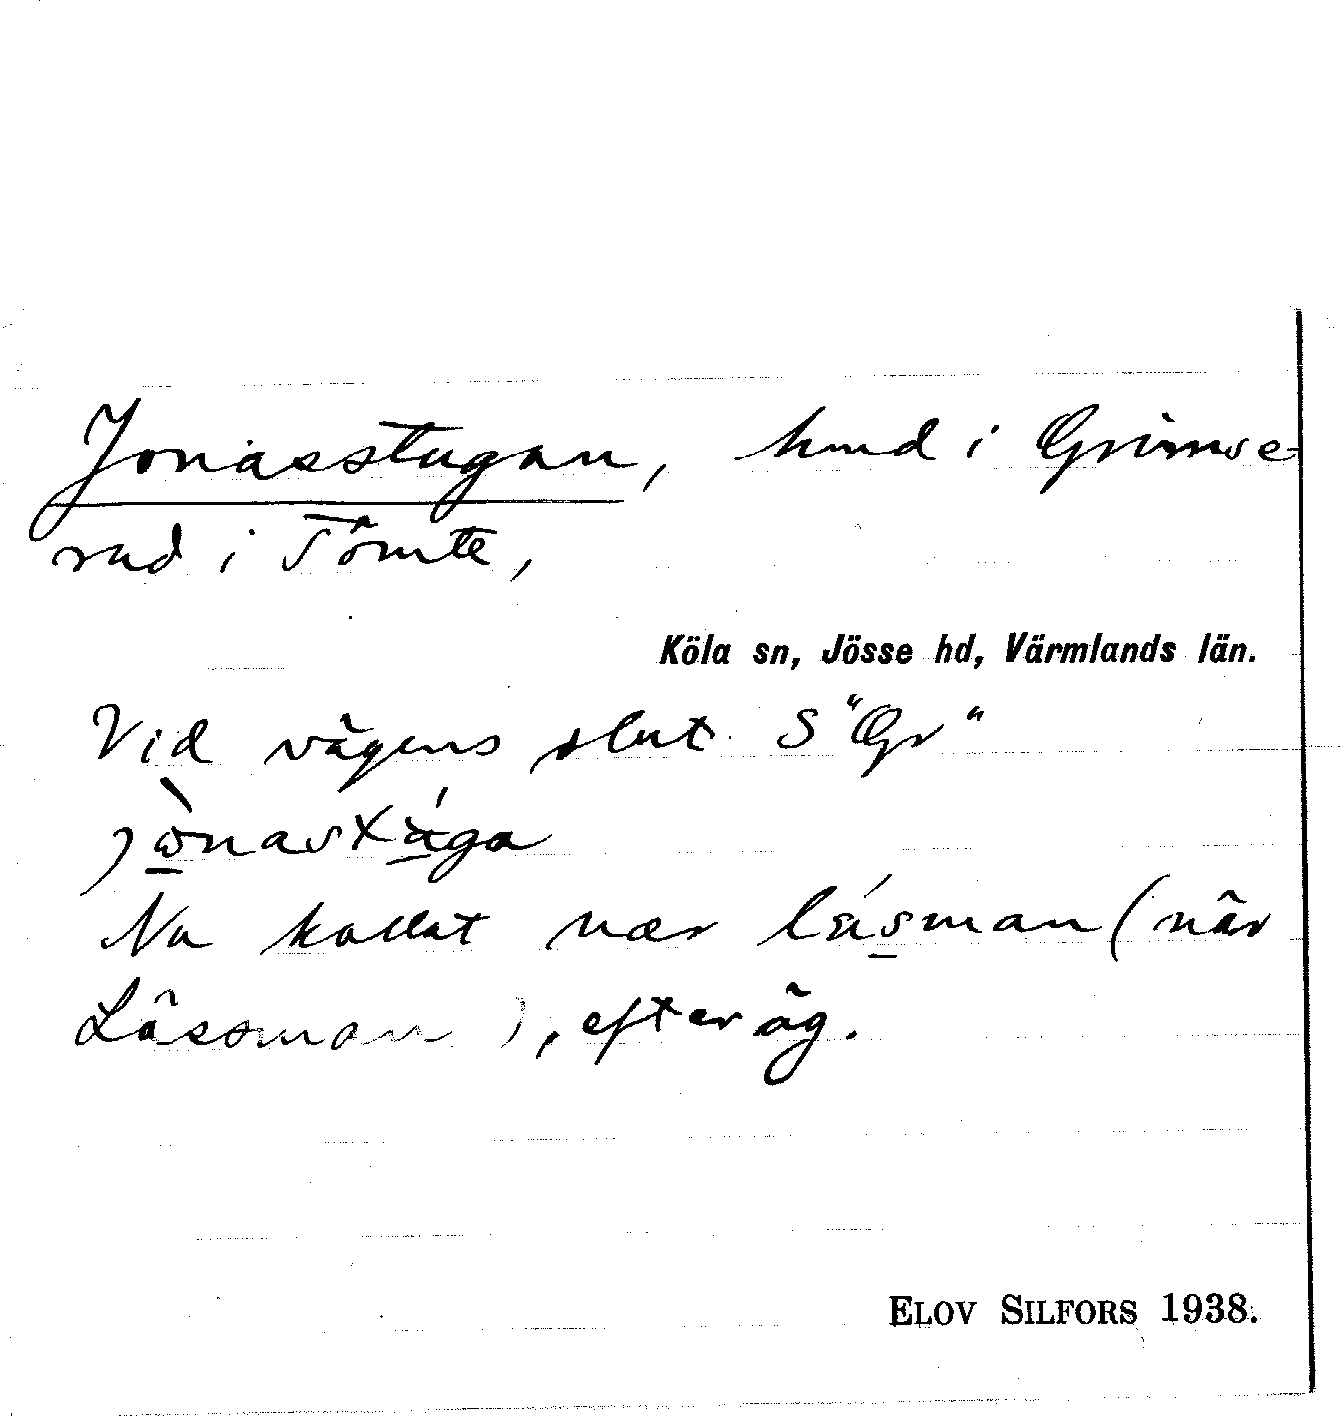 Jonasstugan, hmd i Grimse-
rud i Tömte,
Köla sn, Jösse hd, Värmlands län.
Vid vägens slut S "Gr"
Nu kallat nær läsman (när
Lässman), efter äg.
ELOV SILFORS 1938.